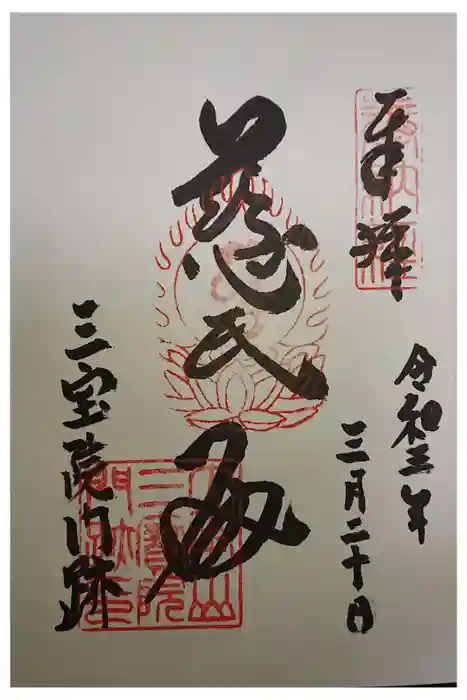 奉拝
令和三年
三月二十日
慈氏殿
三宝院門跡